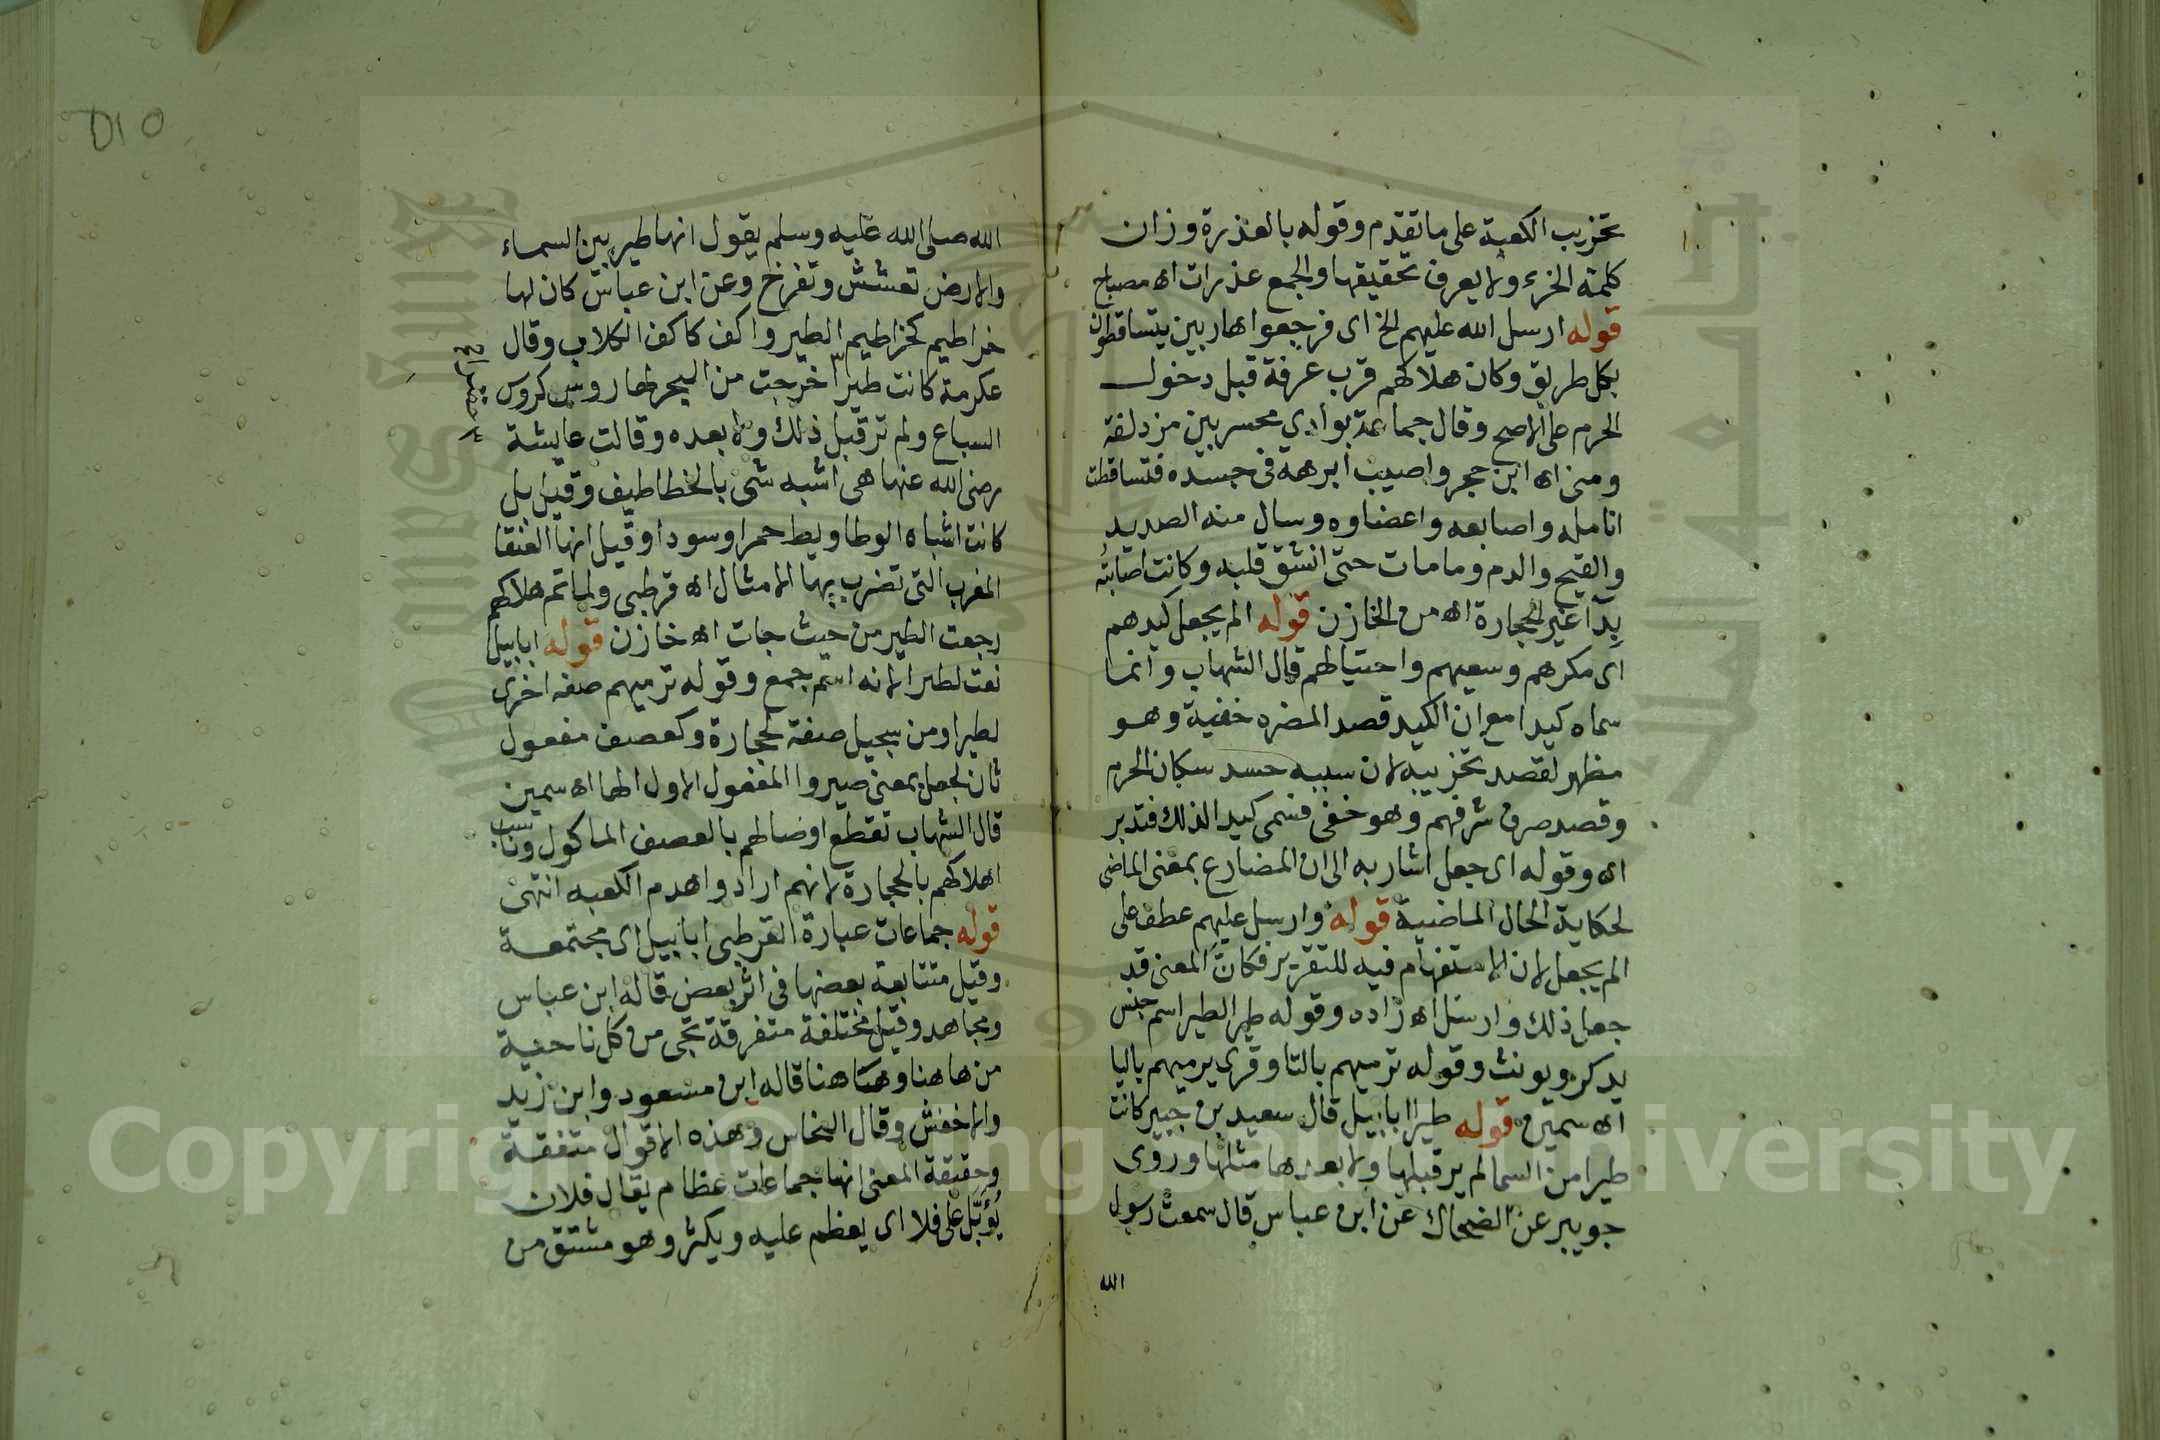 تخزيب الكعبة على ما تقدم وقوله بالعذرة وزان
كلمة الخرء ولا يعرف تحقيقها والجمع عذرات اه مصباح
قوله ارسل الله عليهم الخ اى فرجعوا هاربين يتساقطون
بكل طريق وكان هلاكهم قرب عرفة قبل دخول
الحرم على الاصح وقال جماعة بوادي محسر بين مزدلفة
ومنى اه ابن حجر واصيب ابرهة فى جسده فتساقطت
انامله واصابعه واعضاوه وسال منه الصديد
والقيح والدم وما مات حتى انشق قلبه وكانت اصابته
بدا غير الحجارة اه من الخازن قوله الم يجعل كيدهم
اى مكرهم وسعيهم واحتيالهم قال الشهاب وانما
سماه كيدا مع ان الكيد قصد المضره خفية وهو
مظهر لقصد تخزيبه لان سببه حسد سكان الحرم
وقصد صرف شرفهم وهو خفى فسمى كيدا لذلك فتدبر
اه وقوله اى جعل اشار به الى ان المضارع بمعنى الماضى
لحكاية الحال الماضية قوله وارسل عليهم عطف على
الم يجعل لان الاستفهام فيه للتقرير فكان المعنى قد
جعل ذلك وارسل اه زاده وقوله طيرا الطير اسم جنس
يذكر ويونث وقوله ترميهم بالتا وقرى يرميهم باليا
اه سمين قوله طيرا ابابيل قال سعيد بن جبير كانت
طيرا من السما لم ير قبلها ولا بعدها مثلها وروى
جويبر عن الضحاك عن ابن عباس قال سمعت رسول
الله
٥١٥
الله صلى الله عليه وسلم يقول انها طير بين السماء
والارض تعشش وتفرخ وعن ابن عباس كان لها
خراطيم كخراطيم الطير واكف كاكف الكلاب وقال
عكرمة كانت طيرا خرجت من البحر لها روس كروس
السباع ولم تر قبل ذلك ولا بعده وقالت عايشة
رضى الله عنها هى اشبه شى بالخطاطيف وقيل بل
كانت اشباه الوطاويط حمرا وسودا وقيل انها العنقا
المغرب التى تضرب بها الامثال اه قرطبى ولما تم هلاكهم
رجعت الطير من حيث جات اه خازن قوله ابابيل
نعت لطيرا لانه اسم جمع وقوله ترميهم صفه اخرى
لطيرا ومن سجيل صفة لحجارة وكعصف مفعول
ثان لجعل بمعنى صير والمفعول الاول الها اه سمين
قال الشهاب تقطع اوصالهم بالعصف الماكول وناسب
اهلاكهم بالحجارة لانهم ارادوا هدم الكعبه انتهى
قوله جماعات عبارة القرطبى ابابيل اى مجتمعة
وقيل متتابعة بعضها فى اثر بعض قاله ابن عباس
ومجاهد وقيل مختلفة متفرقة تجى من كل ناحية
من هاهنا وهاهنا قاله ابن مسعود وابن زيد
والاخفش وقال النحاس وهذه الاقوال متفقة
وحقيقة المعنى انها جماعات عظام يقال فلان
يؤبل على فلا اى يعظم عليه ويكثر وهو مشتق من
Copyright © King Saud University